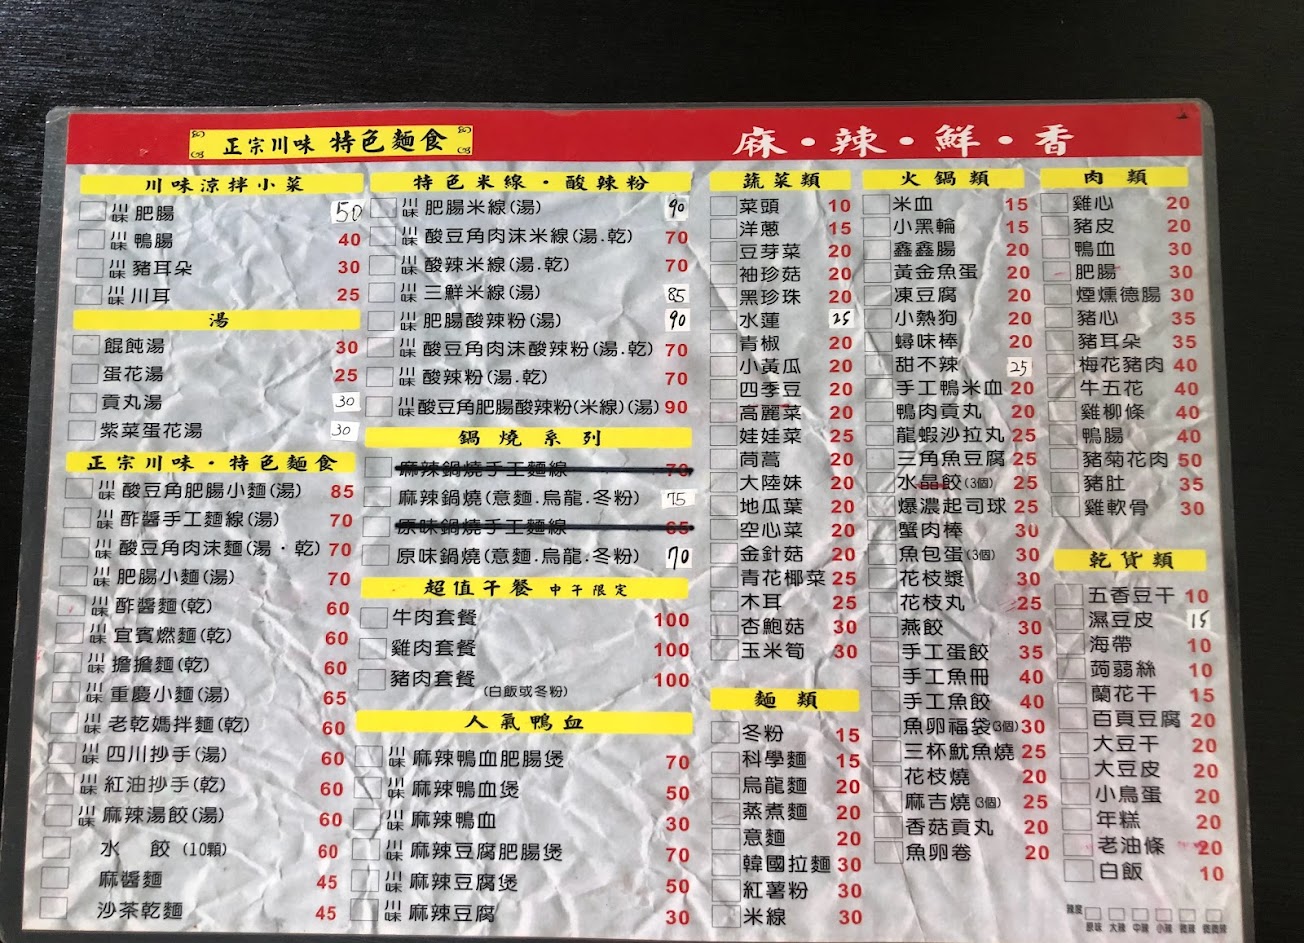 正宗川味 特色麵食
麻・辣・鮮・香
川味涼拌小菜
川味 肥腸 50
川味 鴨腸 40
川味 豬耳朵 30
川味 川耳 25
湯
餛飩湯 30
蛋花湯 25
貢丸湯 30
紫菜蛋花湯 30
正宗川味・特色麵食
川味 酸豆角肥腸小麵(湯) 85
川味 酢醬手工麵線(湯) 70
川味 酸豆角肉沫麵(湯・乾) 70
川味 肥腸小麵(湯) 70
川味 酢醬麵(乾) 60
川味 宜賓燃麵(乾) 60
川味 擔擔麵(乾) 60
川味 重慶小麵(湯) 65
川味 老乾媽拌麵(乾) 60
川味 四川抄手(湯) 60
川味 紅油抄手(乾) 60
川味 麻辣湯餃(湯) 60
水 餃 (10顆) 60
麻醬麵 45
沙茶乾麵 45
特色米線・酸辣粉
川味 肥腸米線(湯) 90
川味 酸豆角肉沫米線(湯.乾) 70
川味 酸辣米線(湯.乾) 70
川味 三鮮米線(湯) 85
川味 肥腸酸辣粉(湯) 90
川味 酸豆角肉沫酸辣粉(湯.乾) 70
川味 酸辣粉(湯.乾) 70
川味 酸豆角肥腸酸辣粉(米線)(湯) 90
鍋燒系列
麻辣鍋燒手工麵線 70
麻辣鍋燒(意麵.烏龍.冬粉) 75
原味鍋燒手工麵線 65
原味鍋燒(意麵.烏龍.冬粉) 70
超值午餐 中午限定
牛肉套餐 100
雞肉套餐 100
豬肉套餐 100
(白飯或冬粉)
人氣鴨血
川味 麻辣鴨血肥腸煲 70
川味 麻辣鴨血煲 50
川味 麻辣鴨血 30
川味 麻辣豆腐肥腸煲 70
川味 麻辣豆腐煲 50
川味 麻辣豆腐 30
蔬菜類
菜頭 10
洋蔥 15
豆芽菜 20
袖珍菇 20
黑珍珠 20
水蓮 25
青椒 20
小黃瓜 20
四季豆 20
高麗菜 20
娃娃菜 25
茼蒿 20
大陸妹 20
地瓜葉 20
空心菜 20
金針菇 20
青花椰菜 25
木耳 25
杏鮑菇 30
玉米筍 30
麵類
冬粉 15
科學麵 15
烏龍麵 20
蒸煮麵 20
意麵 20
韓國拉麵 30
紅薯粉 30
米線 30
火鍋類
米血 15
小黑輪 15
鑫鑫腸 20
黃金魚蛋 20
凍豆腐 20
小熱狗 20
蟳味棒 20
甜不辣 25
手工鴨米血 20
鴨肉貢丸 20
龍蝦沙拉丸 25
三角魚豆腐 25
水晶餃(3個) 25
爆濃起司球 25
蟹肉棒 30
魚包蛋(3個) 30
花枝漿 30
花枝丸 25
燕餃 30
手工蛋餃 35
手工魚冊 40
手工魚餃 40
魚卵福袋(3個) 30
三杯魷魚燒 25
花枝燒 20
麻吉燒(3個) 25
香菇貢丸 20
魚卵卷 20
肉類
雞心 20
豬皮 20
鴨血 30
肥腸 30
煙燻德腸 30
豬心 35
豬耳朵 35
梅花豬肉 40
牛五花 40
雞柳條 40
鴨腸 40
豬菊花肉 50
豬肚 35
雞軟骨 30
乾貨類
五香豆干 10
濕豆皮 15
海帶 10
蒟蒻絲 10
蘭花干 15
百頁豆腐 20
大豆干 20
大豆皮 20
小鳥蛋 20
年糕 20
老油條 20
白飯 10
辣度
原味 大辣 中辣 小辣 微辣 微微辣